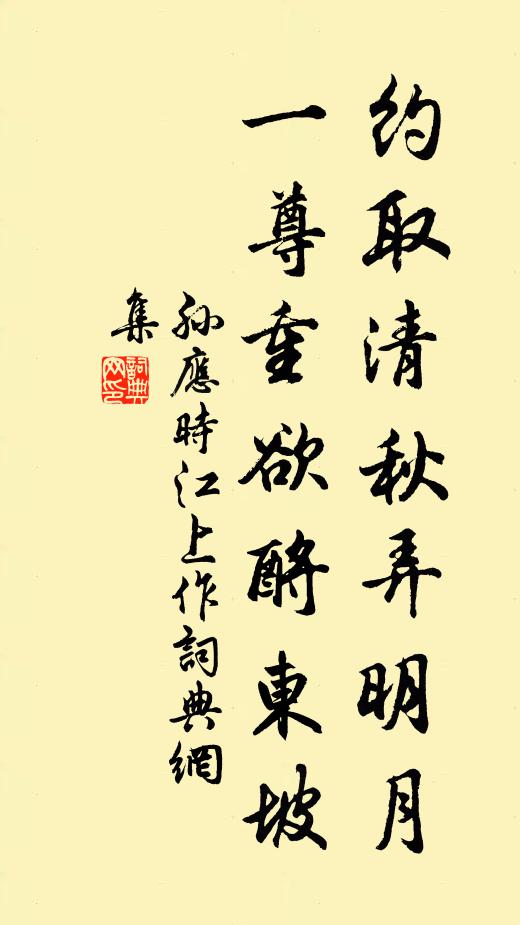 约取清秋弄明月
一尊重欲酹東坡
孙應時江上作詞典網
集
詞典网印